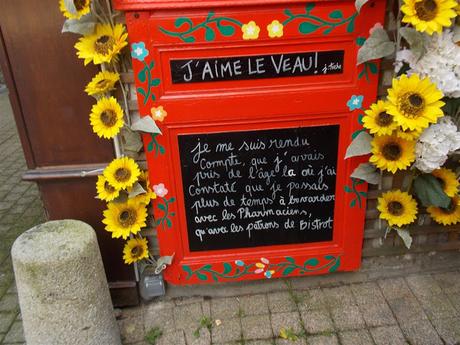 J'AIME LE VEAU!
je me suis rendu
Compte, que j'avais
pris de l'âge là où j'ai
Constaté que je passais
plus de temps à bavarder
avec les Pharmaciens,
qu'avec les patrons de BISTROT